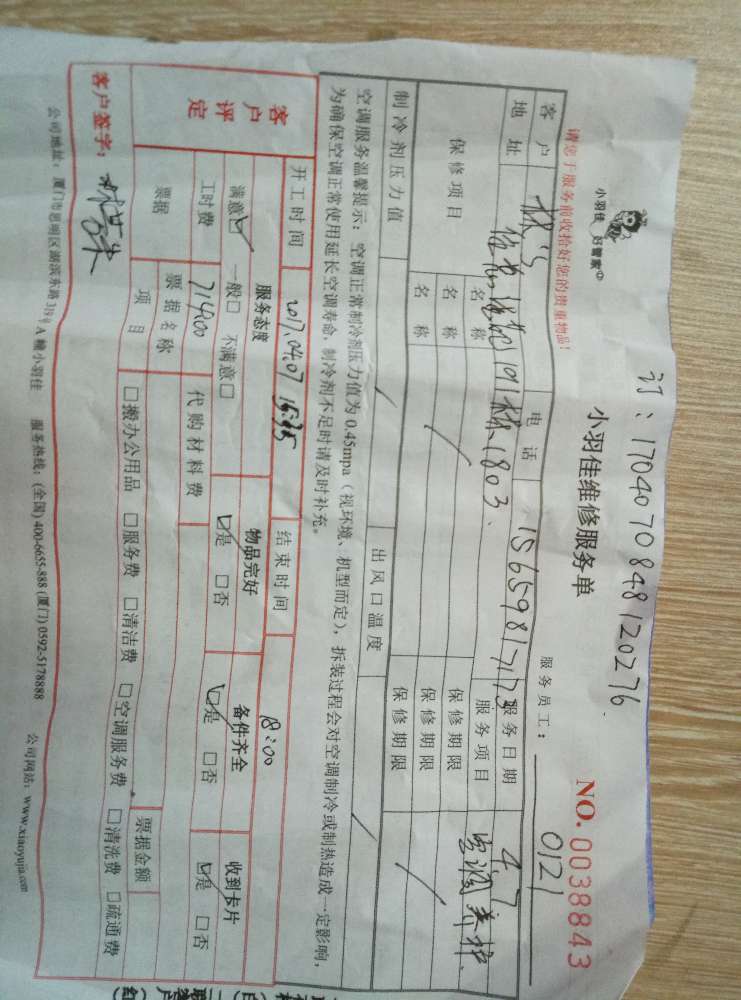 订：1704070848120276
小羽佳 好管家
小羽佳维修服务单
NO. 0038843
请您于服务前收拾好您的贵重物品！
服务员工： 0121
客户 林'S 电话 15659817175 服务日期 4.7
地址 1803、 服务项目 空调养护、
保修项目 名称 保修期限
名称 保修期限
名称 保修期限
制冷剂压力值 出风口温度
空调服务温馨提示：空调正常制冷剂压力值为 0.45mpa（视环境、机型而定），拆装过程会对空调制冷或制热造成一定影响，
为确保空调正常使用延长空调寿命，制冷剂不足时请及时补充。
开工时间 2017.04.07 15:35 结束时间 18:00
客户评定
服务态度 物品完好 备件齐全 收到卡片
满意☑ 一般□ 不满意□ ☑是 □否 ☑是 □否 ☑是 □否
工时费 714.00 代购材料费
票据 票据名称 票据金额
项目 □搬办公用品 □服务费 □清洁费 □空调服务费 □清洗费 □疏通费
客户签字：
公司地址：厦门市思明区湖滨东路 319号 A 幢小羽佳 服务热线：(全国) 400-6655-888 (厦门) 0592-5178888 公司网站：www.xiaoyujia.com